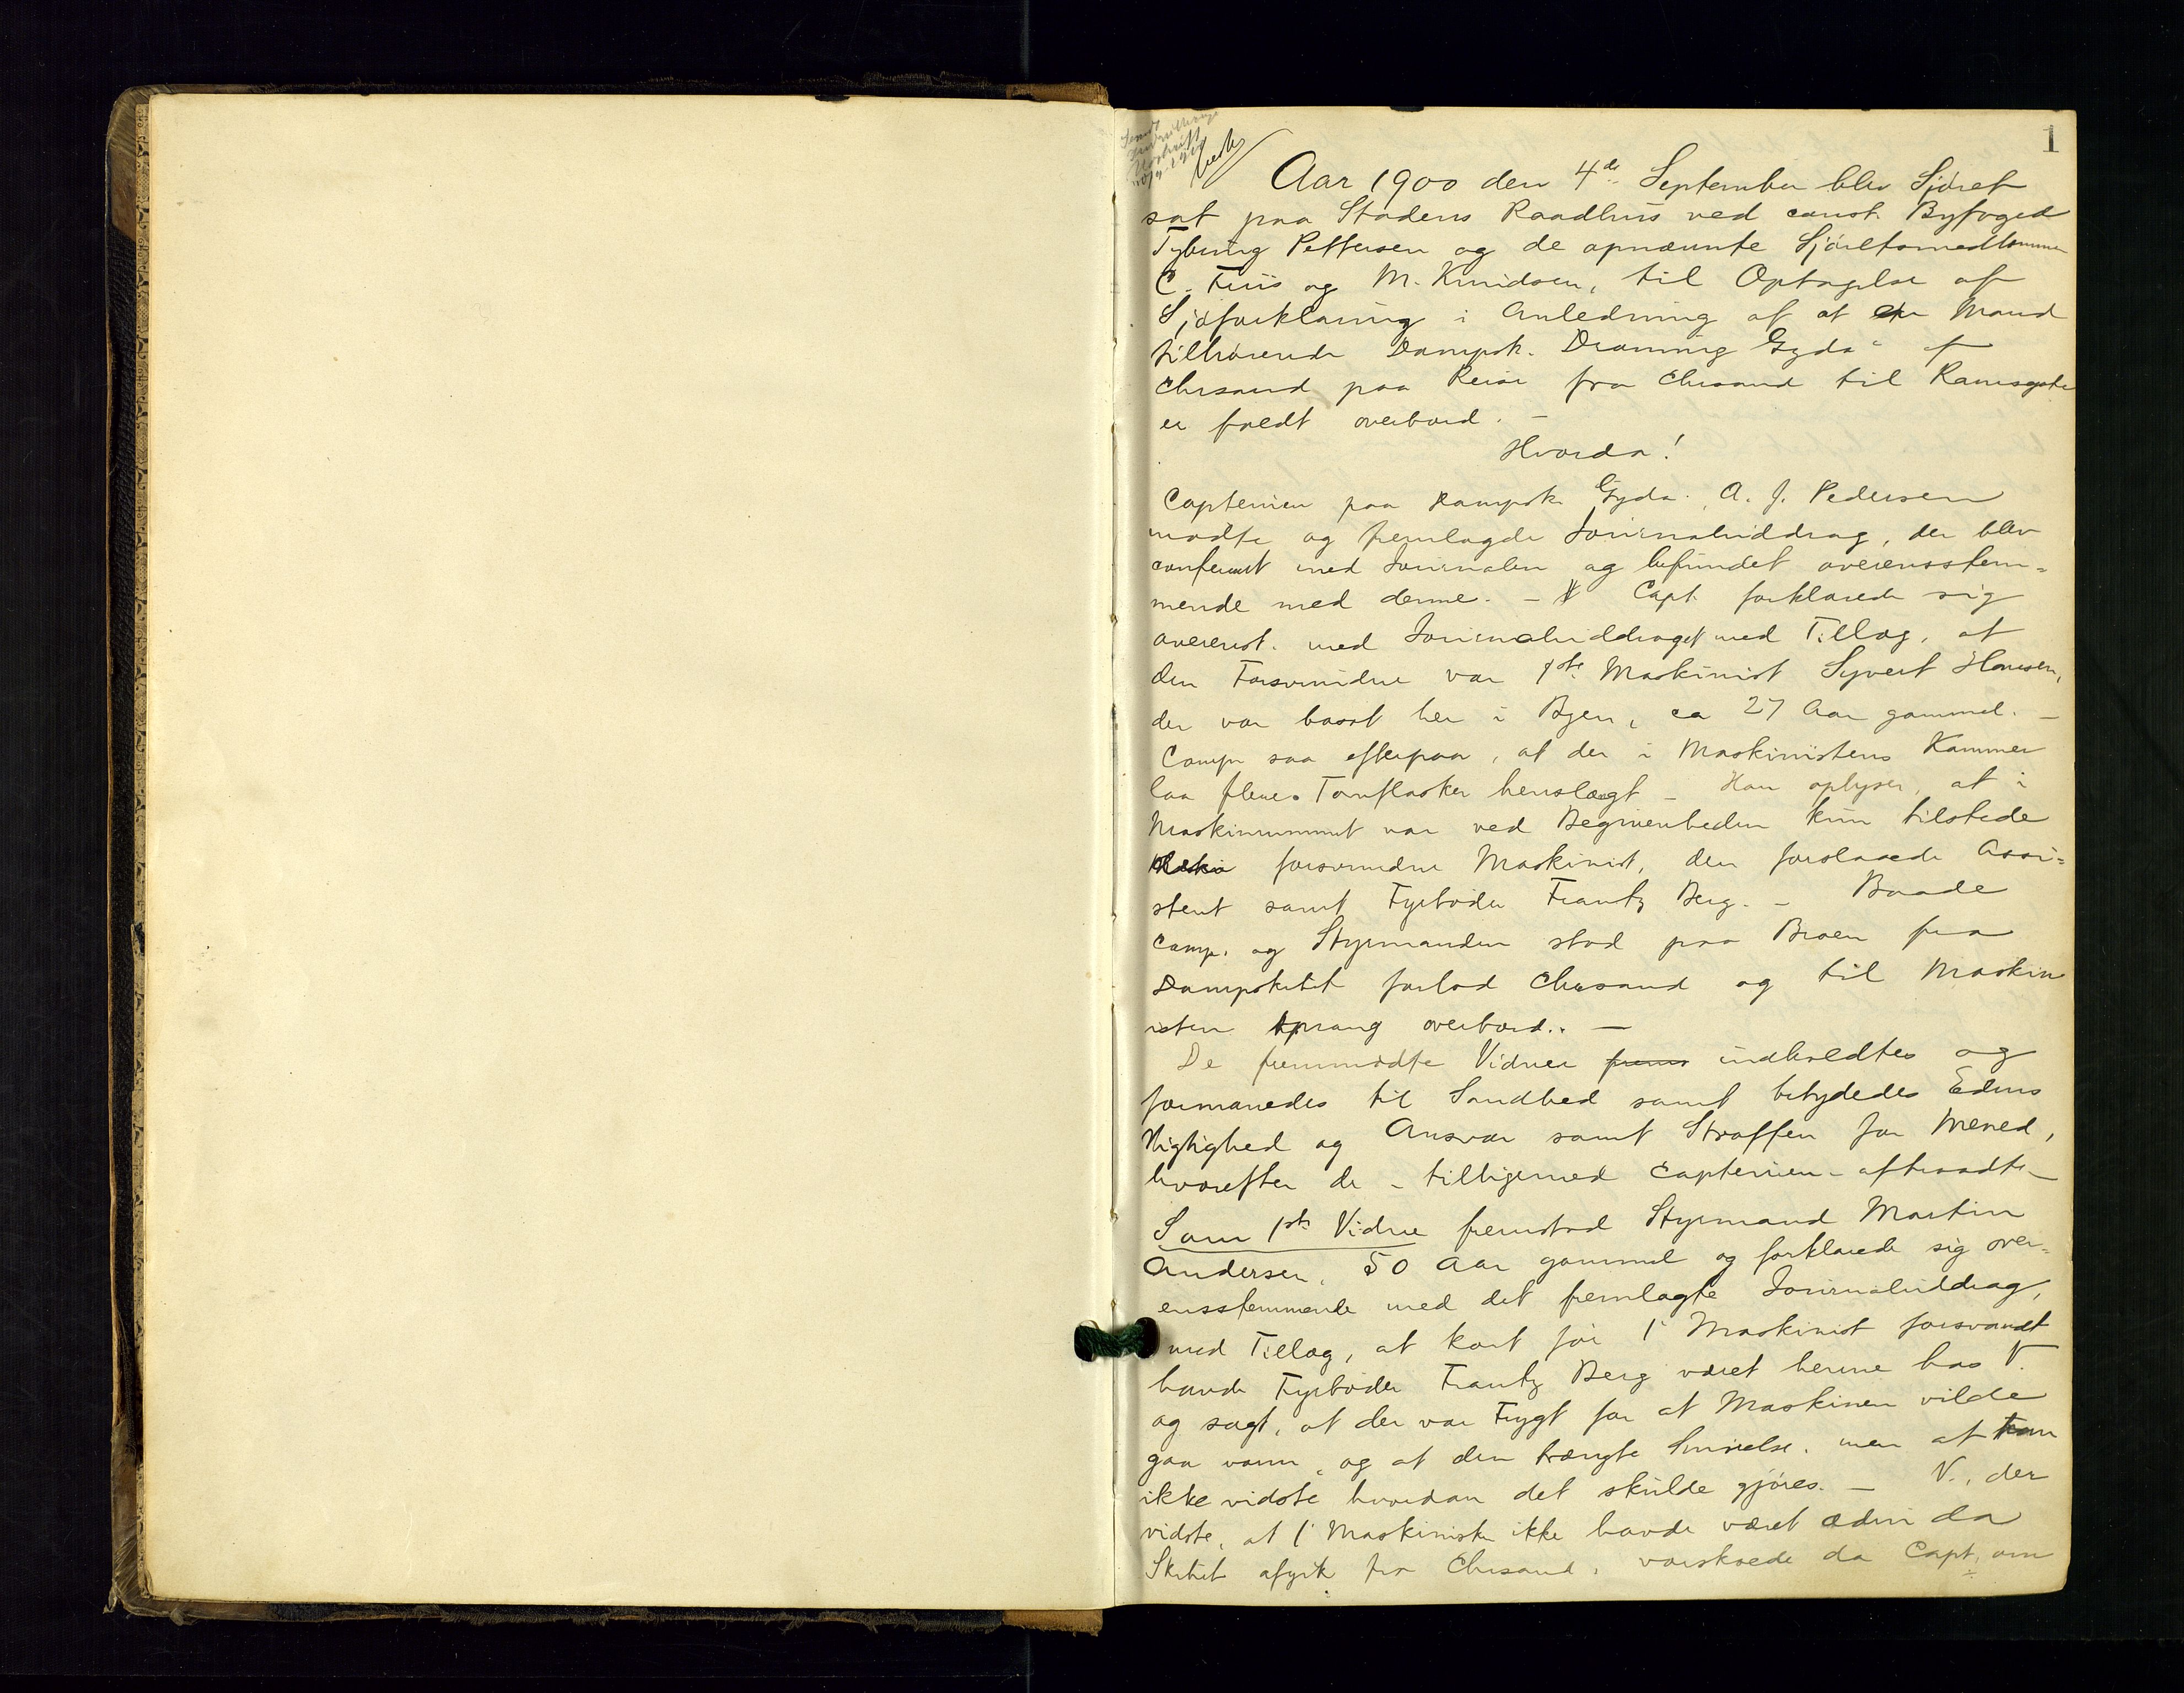 1
Aar 1900 den 4de September blev Sjöret
sat paa Stadens Raadhus ved const. Byfoged
Pettersen og de opnævnte Sjöretsmedlemmer
C. Friis og M. Knudsen, til Optagelse af
Sjöforklaring i Anledning af at en Mand
tilhörende Dampsk. Dronning Gyda" af
Chrsand paa Reise fra Chrsand til Ramsgate
er faldt overbord. -
Hvorda!
Capteinen paa Dampsk. Gyda. A. J. Pedersen
mödte og fremlagde Journaluddrag, der blev
confereret med Journalen og befundet overensstem=
mende med denne. - Capt. forklarede sig
overenst. med Journaluddraget med Tillæg, at
den Forsvundne var 1ste Maskinist Syvert Hansen,
der var bosat her i Byen, ca 27 Aar gammel. -
Capn saa efterpaa, at der i Maskinistens Kammer
laa flere Tomflasker henslængt - Han oplyser, at i
Maskinrummet var ved Begivenheden kun tilstede
forsvundne Maskinist, den forslaaede Assi=
stent samt Fyrböder Frantz Berg. - Baade
Capn. og Styrmanden stod paa Broen fra
Dampskibet forlod Chrsand og til Maskin
isten sprang overbord. -
De fremmödte Vidner indkaldtes og
formanedes til Sandhed samt betydedes Edens
Vigtighed og Ansvar samt Straffen for Mened,
hvorefter de - tilligemed Capteinen - aftraadte
Som 1ste Vidne fremstod Styrmand Martin
Andersen, 50 Aar gammel og forklarede sig over=
ensstemmende med det fremlagte Journaluddrag,
med Tillæg, at kort för 1' Maskinist forsvandt
havde Fyrböder Frantz Berg været henne hos V.
og sagt, at der var Frygt for at Maskinen vilde
gaa varm, og at den trængte Smörelse, men at han
ikke vidste hvordan det skulde gjöres. - V., der
vidste, at 1' Maskinisten ikke havde været ædru da
Skibet afgik fra Chrsand, varskoede da Capt. om